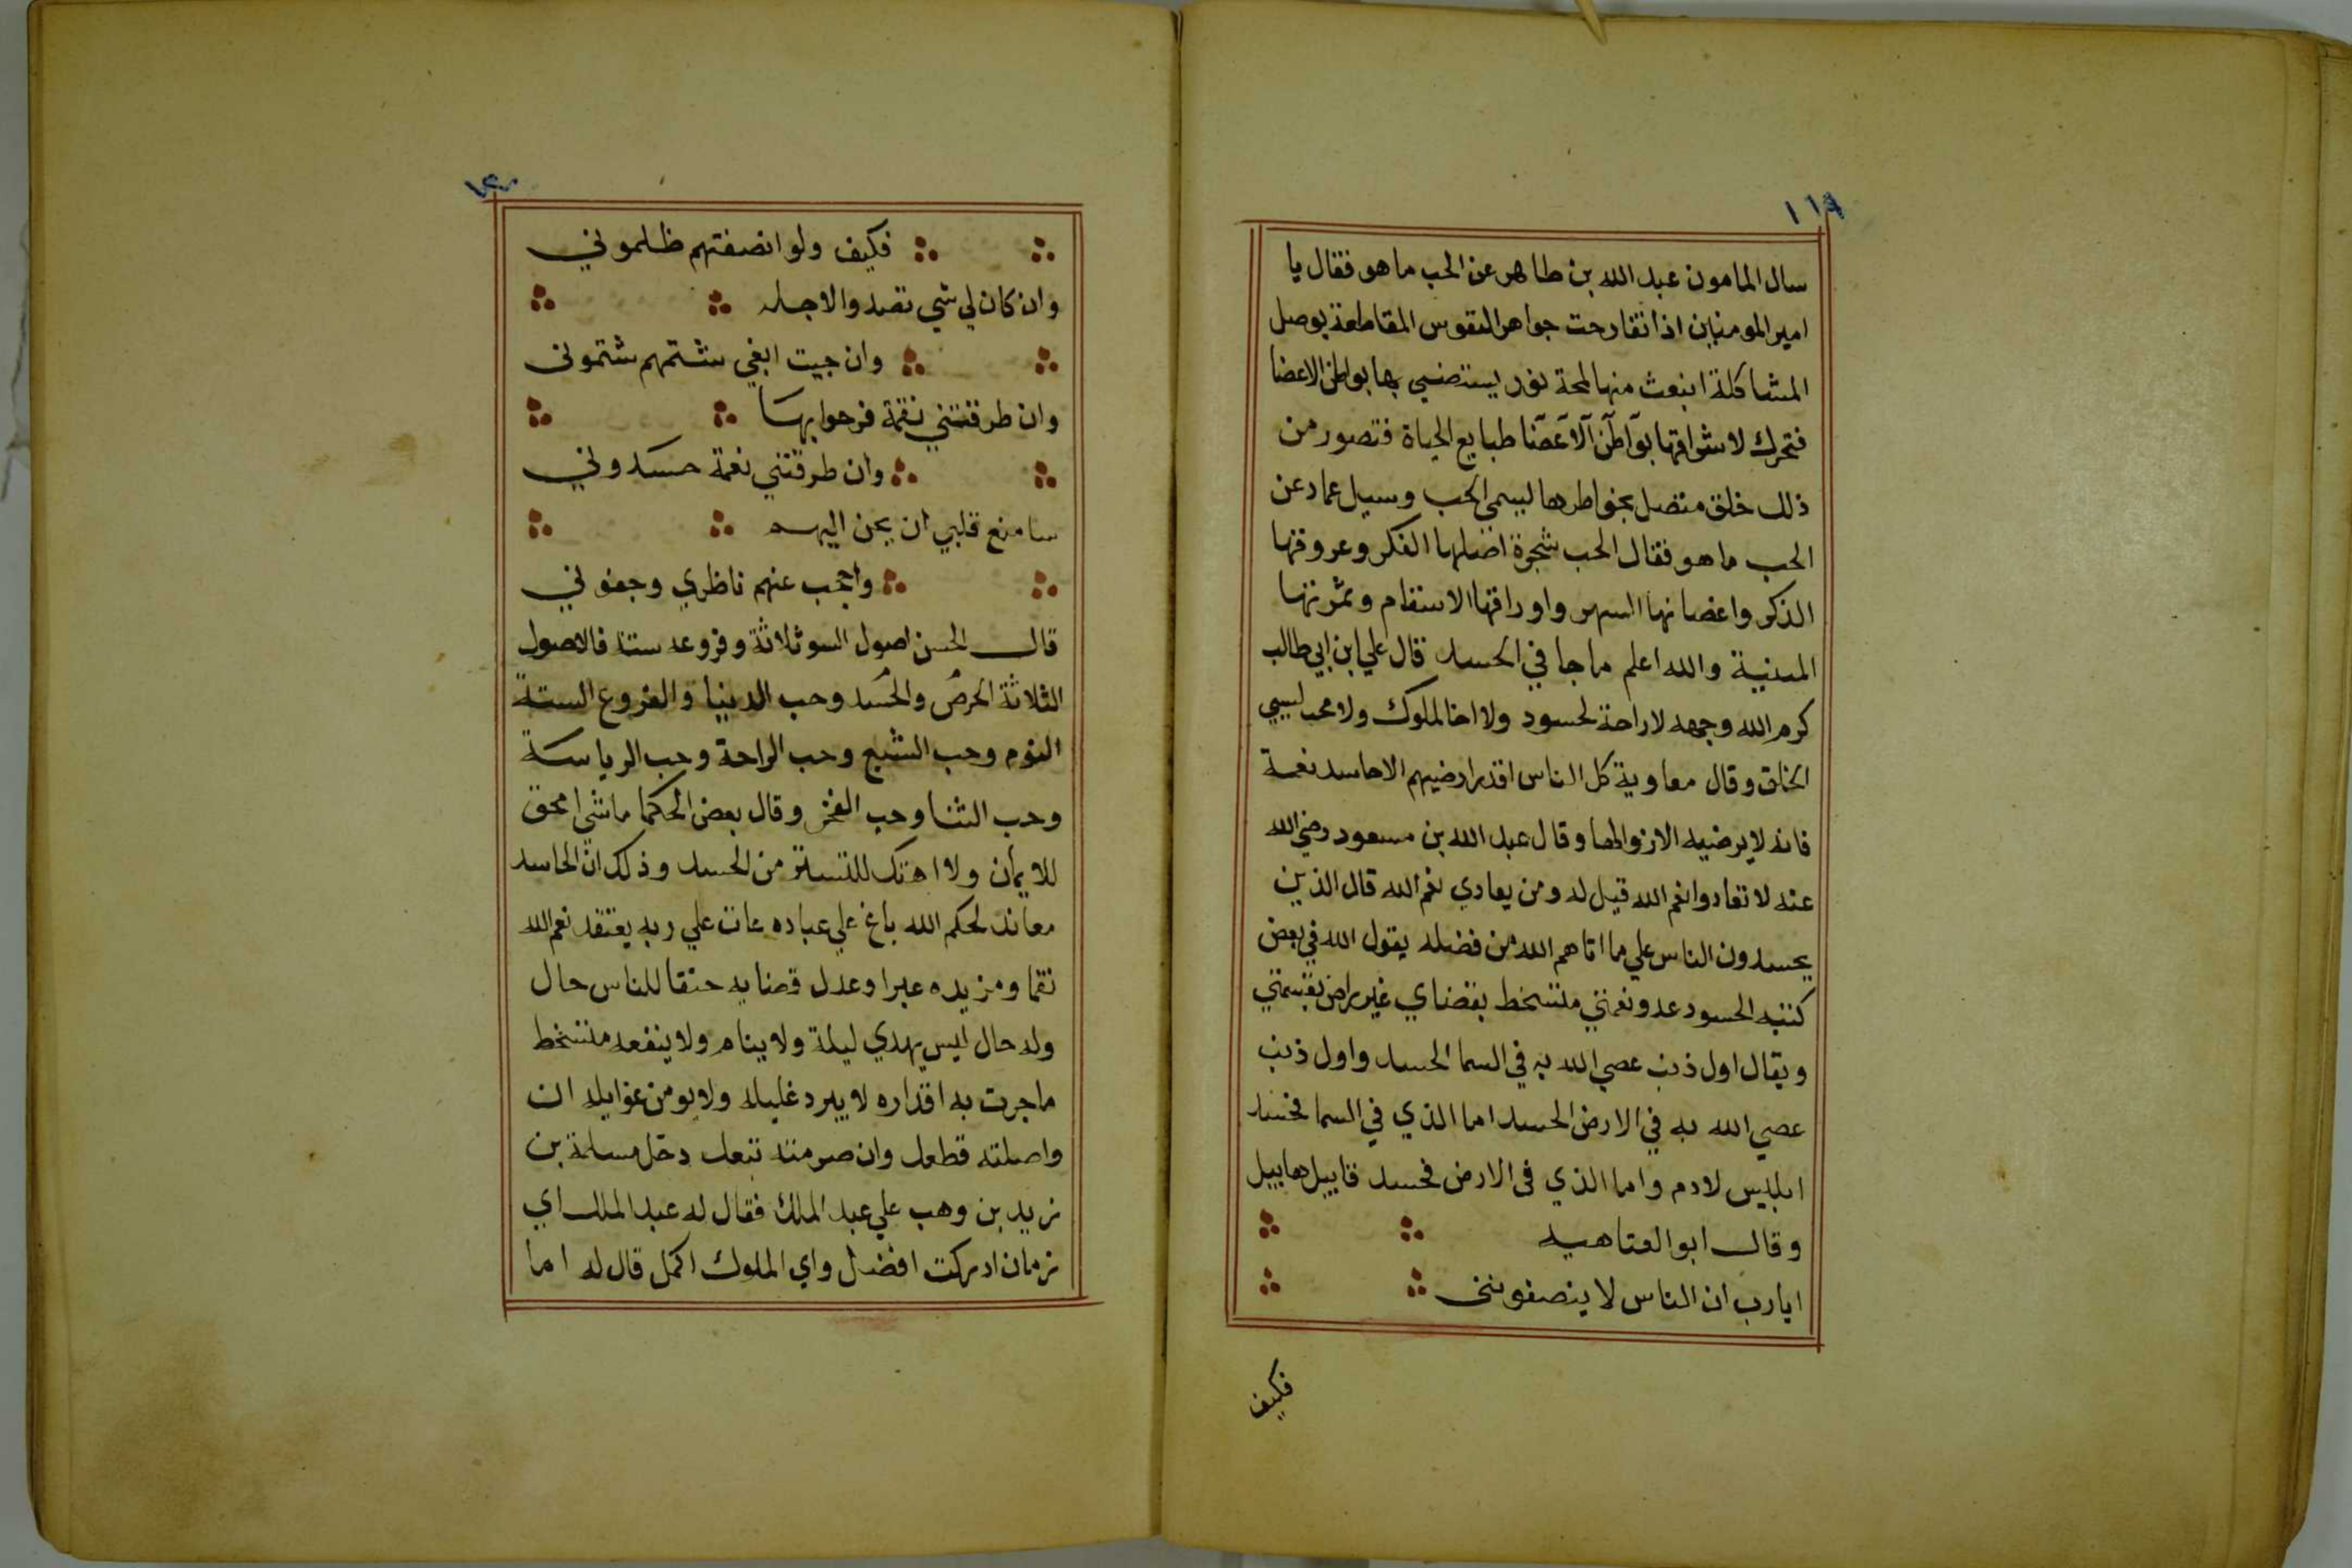 ١١٩
سال المامون عبد الله بن طاهر عن الحب ما هو فقال يا
امير المومنين اذا تقادحت جواهر النفوس المقاطعة بوصل
المشاكلة انبعث منها لمحة نور يستضيي بها بواطن الاعضا
فتحرك لاشراقها بواطن الاعضا طبايع الحياة فتصور من
ذلك خلق متصل بخواطرها ليسمى الحب وسيل عماد عن
الحب ما هو فقال الحب شجرة اصلها الفكر وعروقها
الذكر واغصانها السهر واوراقها الاسقام وثمرتها
المنية والله اعلم ما جا في الحسد قال علي ابن ابي طالب
كرم الله وجهه لا راحة لحسود ولا اخا لملوك ولا محب لسيي
الخلق وقال معاوية كل الناس اقدر ارضيهم الا حاسد نعمة
فانه لا يرضيه الا زوالها وقال عبد الله بن مسعود رضي الله
عنه لا تعادوا نعم الله قيل له ومن يعادي نعم الله قال الذين
يحسدون الناس علي ما اتاهم الله من فضله يقول الله في بعض
كتبه الحسود عدو نعمتي متسخط بقضاي غير راض بقسمتي
ويقال اول ذنب عصي الله به في السما الحسد واول ذنب
عصي الله به في الارض الحسد اما الذي في السما فحسد
ابليس لادم واما الذي في الارض فحسد قابيل هابيل
وقال ابو العتاهيه
ايا رب ان الناس لا ينصفونني
فكيف
١٢٠
فكيف ولو انصفتهم ظلموني
وان كان لي شي تصدوا لاجله
وان جيت ابغي شتمهم شتموني
وان طرقتني نقمة فرحوا بها
وان طرقتني نعمة حسدوني
سامنع قلبي ان يحن اليهم
واحجب عنهم ناظري وجفوني
قال الحسن اصول السو ثلاثة وفروعه ستة فالاصول
الثلاثة الحرص والحسد وحب الدنيا والفروع الستة
النوم وحب الشبع وحب الراحة وحب الرياسة
وحب الثنا وحب الفخر وقال بعض الحكما ما شي امحق
للايمان ولا اهتك للستر من الحسد وذلك ان الحاسد
معاند لحكم الله باغ علي عباده عات علي ربه يعتقد نعم الله
نقما ومزيده عبرا وعدل قضايه حنقا للناس حال
وله حال ليس يهدي ليلة ولا ينام ولا ينفعه متسخط
ما جرت به اقداره لا يبرد غليله ولا يومن غوايله ان
واصلته قطعك وان صرمته تبعك دخل مسلمة بن
زيد بن وهب علي عبد الملك فقال له عبد الملك اي
زمان ادركت افضل واي الملوك اكمل قال له اما